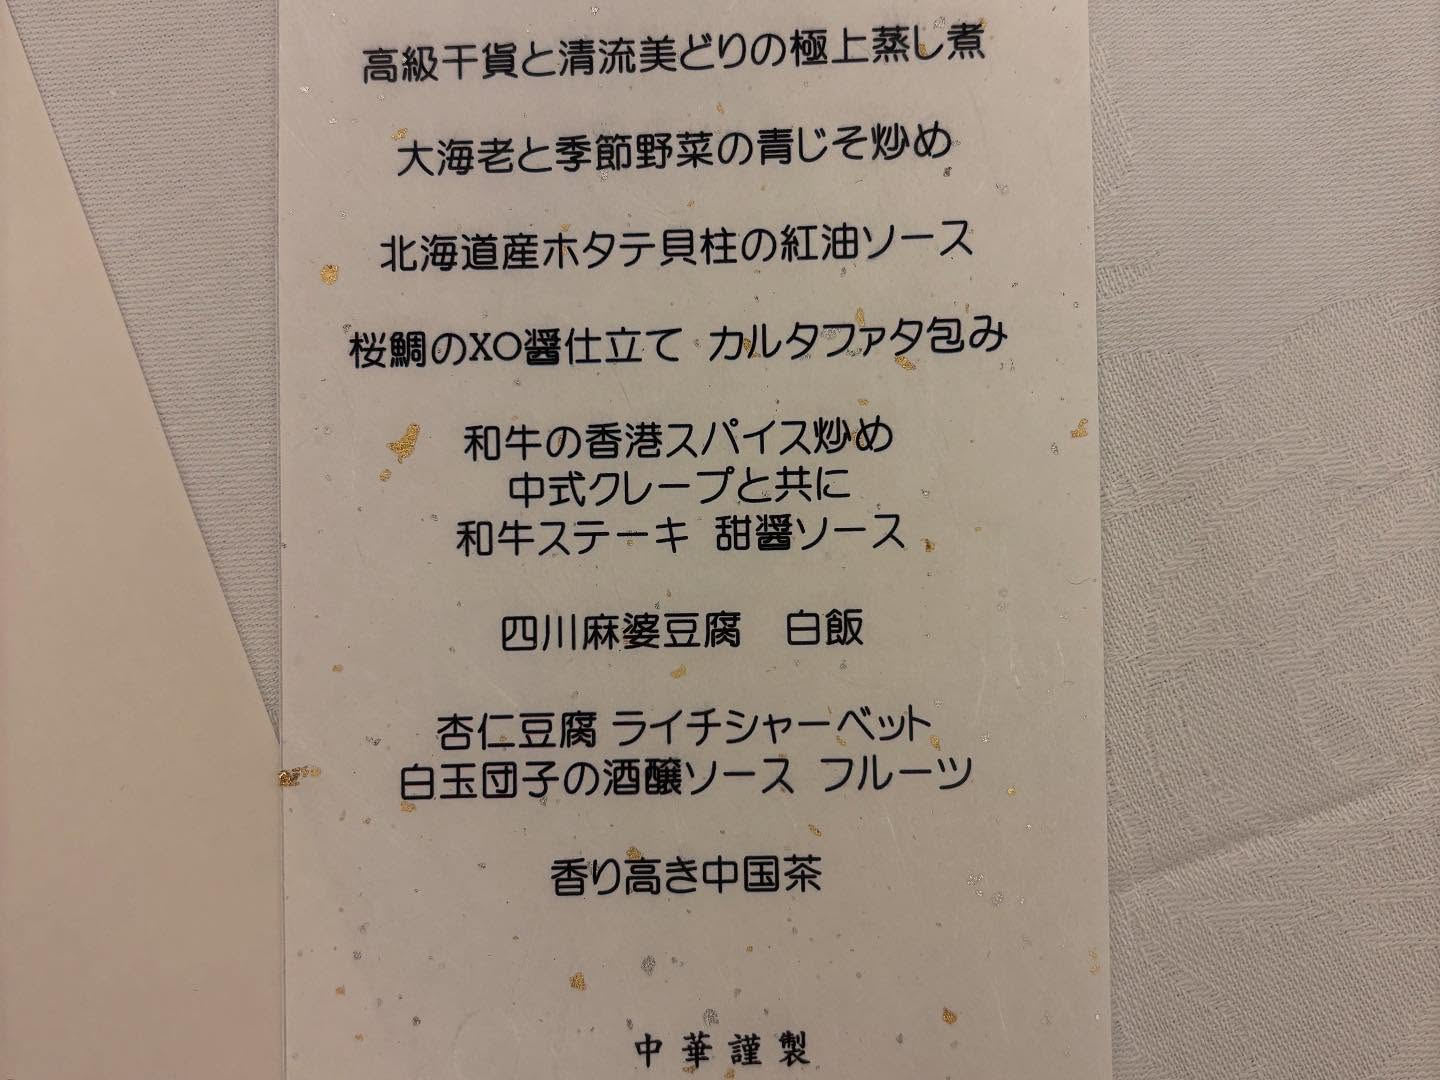 高級干貨と清流美どりの極上蒸し煮
大海老と季節野菜の青じそ炒め
北海道産ホタテ貝柱の紅油ソース
桜鯛のXO醤仕立て カルタファタ包み
和牛の香港スパイス炒め
中式クレープと共に
和牛ステーキ 甜醤ソース
四川麻婆豆腐 白飯
杏仁豆腐 ライチシャーベット
白玉団子の酒醸ソース フルーツ
香り高き中国茶
中華謹製